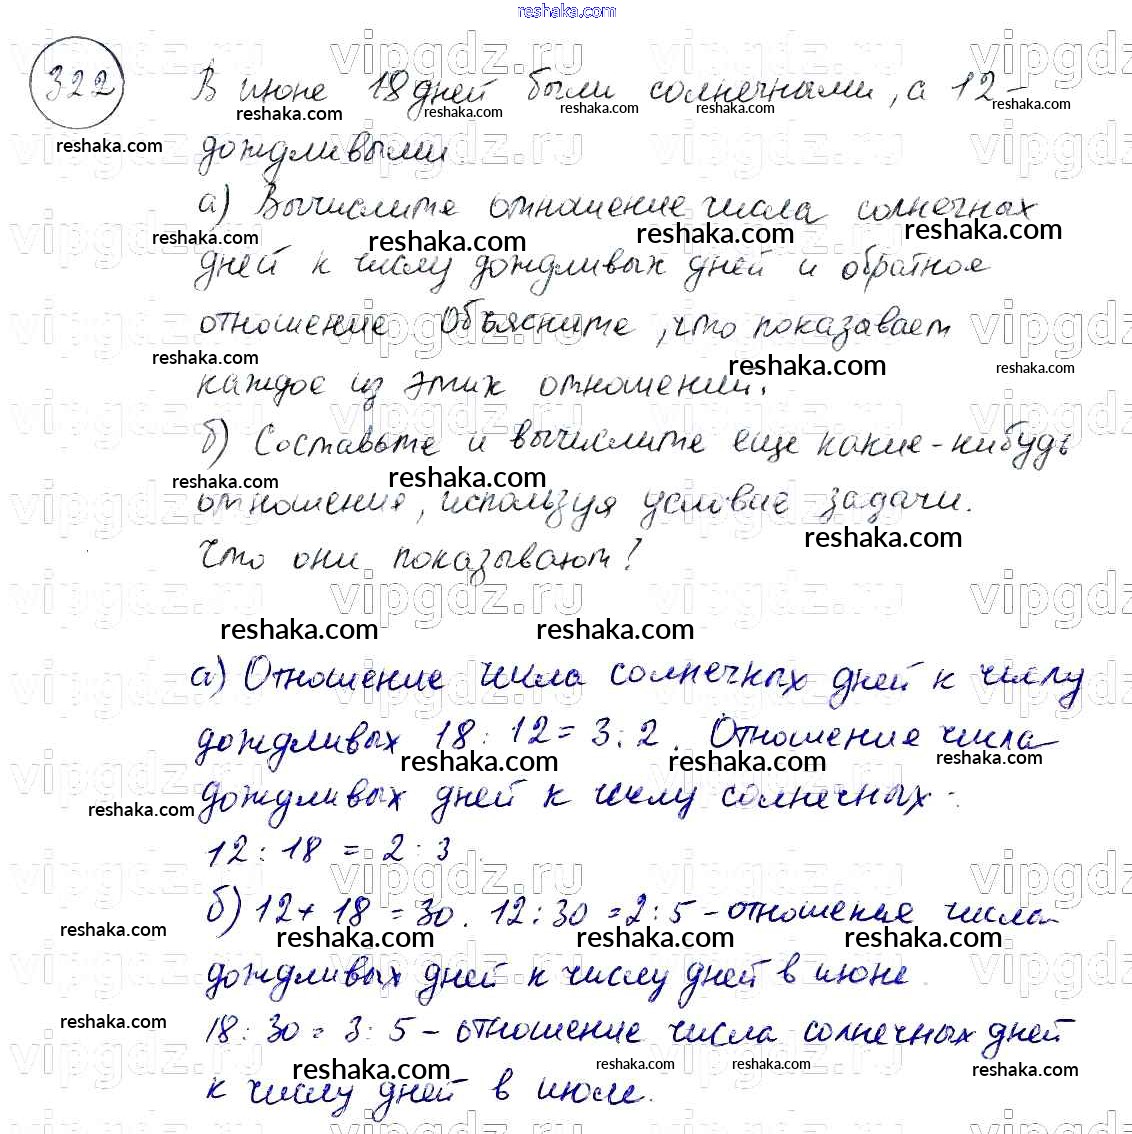 reshaka.com
322
В июне 18 дней были солнечными, а 12 -
дождливыми.
а) Вычислите отношение числа солнечных
дней к числу дождливых дней и обратное
отношение Объясните, что показывает
каждое из этих отношений.
б) Составьте и вычислите еще какие-нибудь
отношения, используя условие задачи.
Что они показывают?
а) Отношение числа солнечных дней к числу
дождливых 18 : 12 = 3 : 2. Отношение числа
дождливых дней к числу солнечных -
12 : 18 = 2 : 3.
б) 12 + 18 = 30. 12 : 30 = 2 : 5 - отношение числа
дождливых дней к числу дней в июне.
18 : 30 = 3 : 5 - отношение числа солнечных дней
к числу дней в июле.